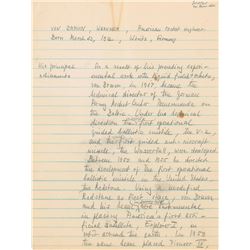 VON BRAUN, WERNHER, American rocket engineer
Born March 23, 1912, Wirsitz, Germany
His principal achievements
In a series of his pioneering experimental
work with liquid fuel rockets,
von Braun, in 1937, became the
technical director of the German
Army Rocket Center Peenemunde on
the Baltic. Under his technical
direction the first operational
guided ballistic missile, the V-2,
and the first guided anti-aircraft
missile, the Wasserfall, were developed.
Between 1950 and 1955 he directed
the development of the first operational
ballistic missile in the United States,
the Redstone. Using a modified
Redstone as first stage, von Braun
and his team succeeded
in placing America's first artificial
satellite, Explorer I, in
orbit around the earth. In 1959
the same team placed Pioneer IV